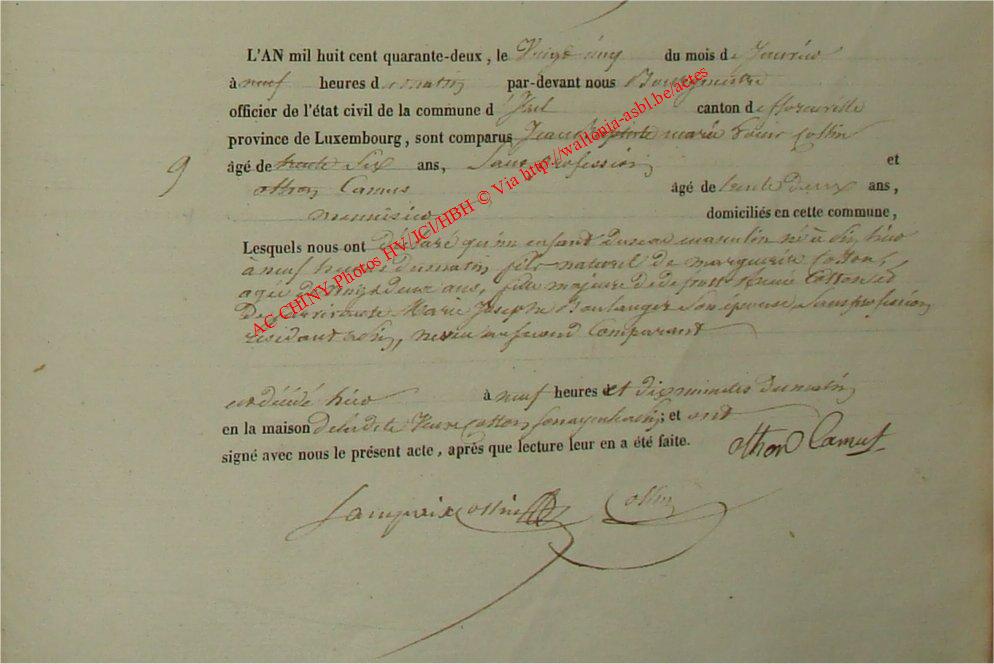 L'AN mil huit cent quarante-deux, le Vingt cinq du mois de Janvier
à neuf heures d u matin par-devant nous Bourgmestre
officier de l'état civil de la commune d canton de florenville
province de Luxembourg, sont comparus Jean Baptiste marie Cottin
9 âgé de trente Six ans, Sans profession et
othon Camus âgé de trente deux ans,
menuisier domiciliés en cette commune,
Lesquels nous ont Déclaré qu'un enfant du sexe masculin né à hier
à neuf heures du matin, fils naturel de marguerite
agée de Vingt deux ans, fille majeure de defunt et
de Marie Joseph Boulanger Son épouse Sans profession
résidant second Comparant
est décédé hier à neuf heures et dix minutes du matin
en la maison de la dite Veuve ; et ont
signé avec nous le présent acte, après que lecture leur en a été faite.
othon Camus
AC CHINY Photos HV/JCl/HBH © Via http://wallonia-asbl.be/actes